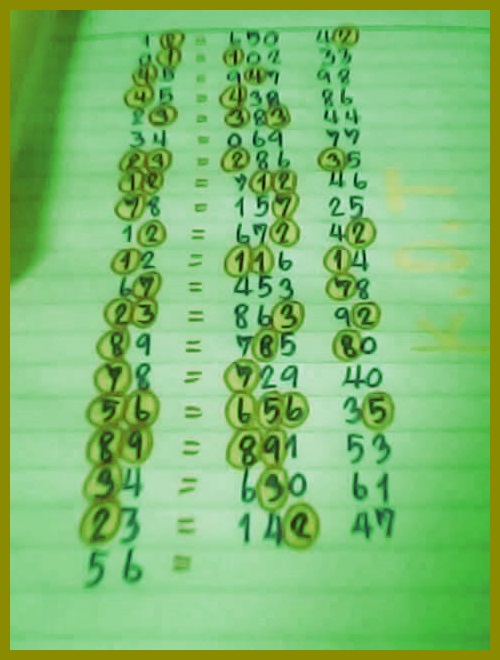 12 = 650 42
01 = 102 33
45 = 947 98
45 = 438 86
23 = 383 44
34 = 069 77
23 = 286 35
12 = 712 46
78 = 157 25
12 = 672 42
12 = 116 14
67 = 453 78
23 = 863 92
89 = 785 80
78 = 729 40
56 = 656 35
89 = 891 53
34 = 630 61
23 = 142 47
56 =
K.O.T